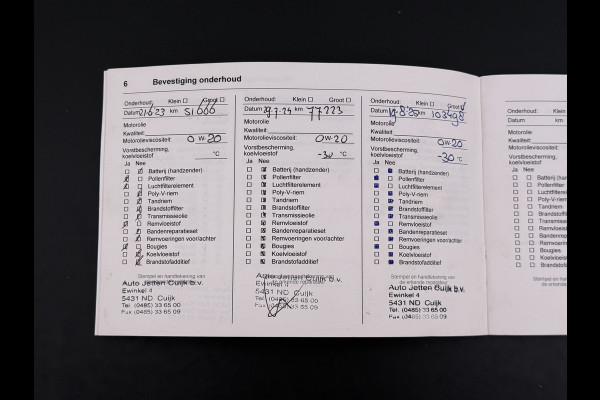 6 Bevestiging onderhoud
Onderhoud: Klein Groot
Datum 21623 km 51666
Motorolie
Kwaliteit:
Motorolieviscositeit: 0W-20
Vorstbescherming, koelvloeistof °C
Ja Nee
Batterij (handzender)
Pollenfilter
Luchtfilterelement
Poly-V-riem
Tandriem
Brandstoffilter
Transmissieolie
Remvloeistof
Bandenreparatieset
Remvoeringen voor/achter
Bougies
Koelvloeistof
Brandstofadditief
Stempel en handtekening van
Auto Jetten Cuijk b.v.
Ewinkel 4
5431 ND Cuijk
Tel. (0485) 33 65 00
Fax (0485) 33 65 09
Onderhoud: Klein Groot
Datum 29.7.24 km 77223
Motorolie
Kwaliteit:
Motorolieviscositeit: 0W-20
Vorstbescherming, koelvloeistof -30 °C
Ja Nee
Batterij (handzender)
Pollenfilter
Luchtfilterelement
Poly-V-riem
Tandriem
Brandstoffilter
Transmissieolie
Remvloeistof
Bandenreparatieset
Remvoeringen voor/achter
Bougies
Koelvloeistof
Brandstofadditief
Auto Jetten Cuijk b.v.
Ewinkel 4
5431 ND Cuijk
Tel. (0485) 33 65 00
Fax (0485) 33 65 09
Onderhoud: Klein Groot
Datum km 103498
Motorolie
Kwaliteit:
Motorolieviscositeit: 0W-20
Vorstbescherming, koelvloeistof -30 °C
Ja Nee
Batterij (handzender)
Pollenfilter
Luchtfilterelement
Poly-V-riem
Tandriem
Brandstoffilter
Transmissieolie
Remvloeistof
Bandenreparatieset
Remvoeringen voor/achter
Bougies
Koelvloeistof
Brandstofadditief
Stempel en handtekening van
de erkende reparateur
Auto Jetten Cuijk b.v.
Ewinkel 4
5431 ND Cuijk
Tel. (0485) 33 65 00
Fax (0485) 33 65 09
Onderhoud: Klein
Datum km
Motorolie
Kwaliteit:
Motorolieviscositeit:
Vorstbescherming, koelvloeistof
Ja Nee
Batterij (hand
Pollenfilter
Luchtfilterele
Poly-V-riem
Tandriem
Brandstoffilte
Transmissieo
Remvloeistof
Bandenrepar
Remvoeringe
Bougies
Koelvloeistof
Brandstofadd
Stempel en ha
de erkende